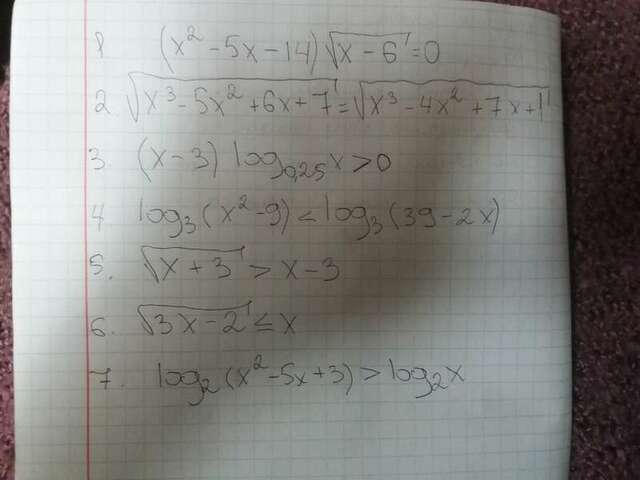 1 (x² - 5x - 14) √(x - 6) = 0
2. √(x³ - 5x² + 6x + 7) = √(x³ - 4x² + 7x + 1)
3. (x - 3) log₀,₂₅ x > 0
4 log₃ (x² - 9) < log₃ (39 - 2x)
5. √(x + 3) > x - 3
6. √(3x - 2) ≤ x
7. log₂ (x² - 5x + 3) > log₂ x